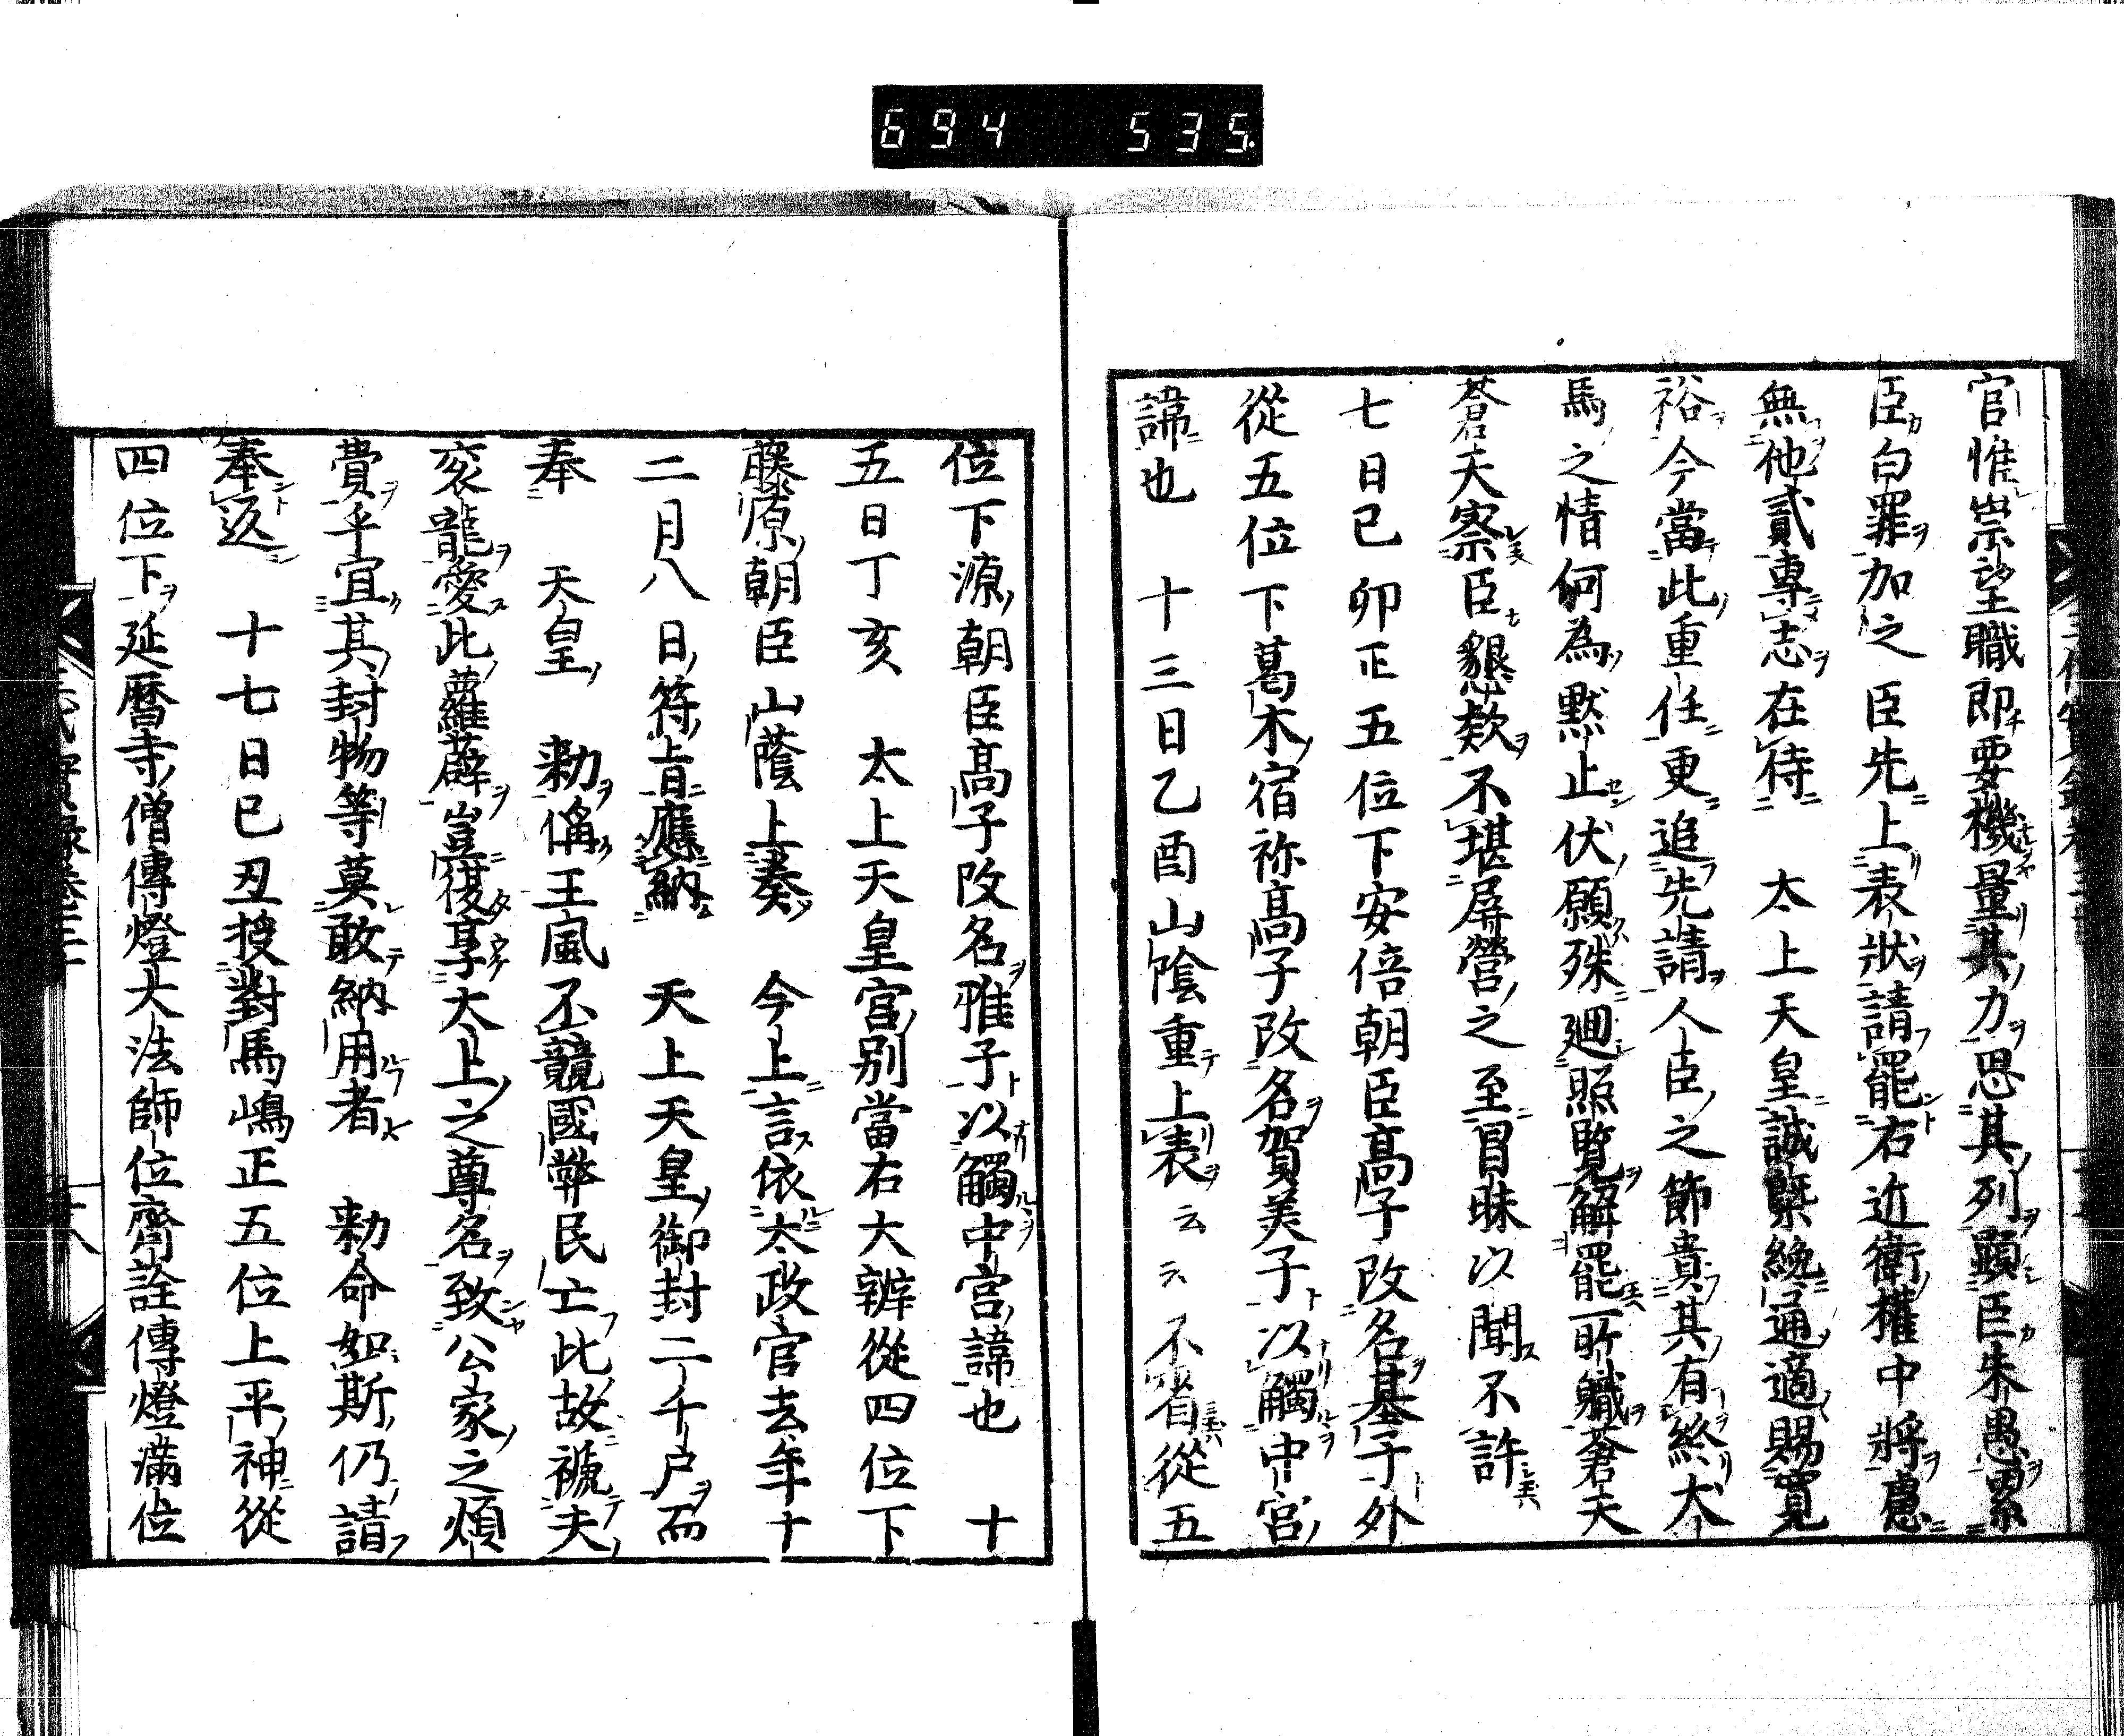 694 535
官惟崇望職即要機量其力思其列顕臣朱愚累
臣白罪加之臣先上表狀請罷右近衛權中將意
無他貳專志在待 太上天皇誠繫絶通適賜寛
裕今當此重任更追先請人臣之節貴其有終犬
馬之情何為默止伏願殊廻照覧解罷所職蒼天
蒼天察臣懇欵不堪屏營之至冒昧以聞不許
七日已卯正五位下安倍朝臣高子改名基子外
從五位下葛木宿祢高子改名賀美子以觸中宮
諱也 十三日乙酉山陰重上表云云不省從五
位下源朝臣高子改名雅子以觸中宮諱也 十
五日丁亥 太上天皇宮別當右大辨從四位下
藤原朝臣山蔭上奏 今上言依太政官去年十
二月八日符旨應納 天上天皇御封二千戸而
奉 天皇 勅偁王風不競國弊民亡此故褫夫
衮龍愛此蘿薜豈復享太上之尊名致公家之煩
費乎宜其封物等莫敢納用者 勅命如斯仍請
奉返 十七日已丑授對馬嶋正五位上平神從
四位下延暦寺僧傳燈大法師位齊詮傳燈滿位